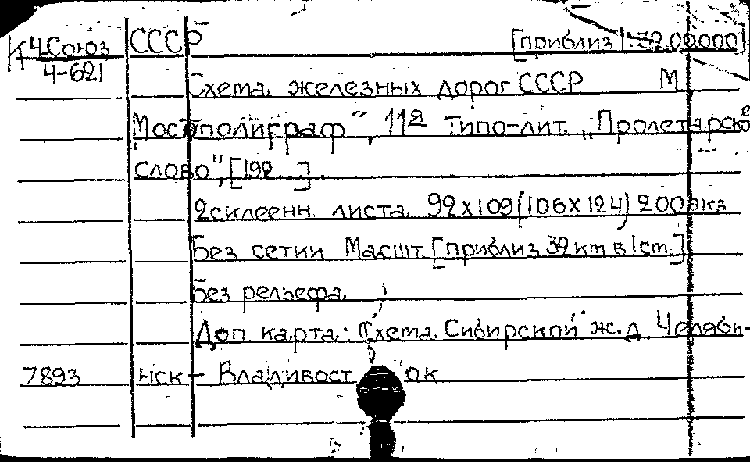 К 4.Союз СССР [приблиз 1:3200000]
4-621
Схема железных дорог СССР М.
„Мосполиграф", 11я типо-лит. „Пролетарское
слово", [192 ].
2 склеенн. листа. 92х109 (106х124) 200 экз
Без сетки Масшт. [приблиз 32 км в 1 ст.]
Без рельефа.
Доп карта: Схема Сибирской ж.д. Челяби-
7893 нск - Владивосток